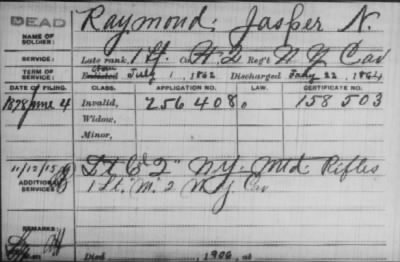 DEAD
Raymond, Jasper N.
NAME OF SOLDIER:
SERVICE: Late rank, 1 Lt. Co. H. 2 Reg't N Y Cav
TERM OF SERVICE: Enlisted July 1, 1862 Discharged 22, 1864
DATE OF FILING. CLASS. APPLICATION NO. LAW. CERTIFICATE NO.
1878 June 4 Invalid, 256 408. 158 503
Widow,
Minor,
11/12/15 Lt C 2" NY. Mtd Rifles
ADDITIONAL SERVICES: 1 Lt. "M." 2 N Y Cav
REMARKS:
Died , 1906, at